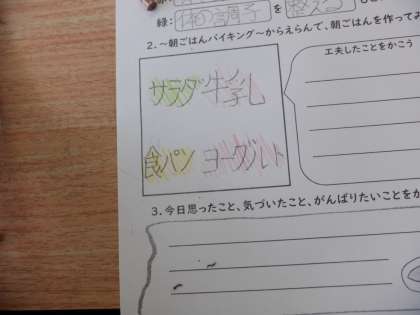 緑: 体の調子 を 整える
2. ～朝ごはんバイキング～からえらんで、朝ごはんを作ってみ
工夫したことをかこう
サラダ 牛乳
食パン ヨーグルト
3. 今日思ったこと、気づいたこと、がんばりたいことをか